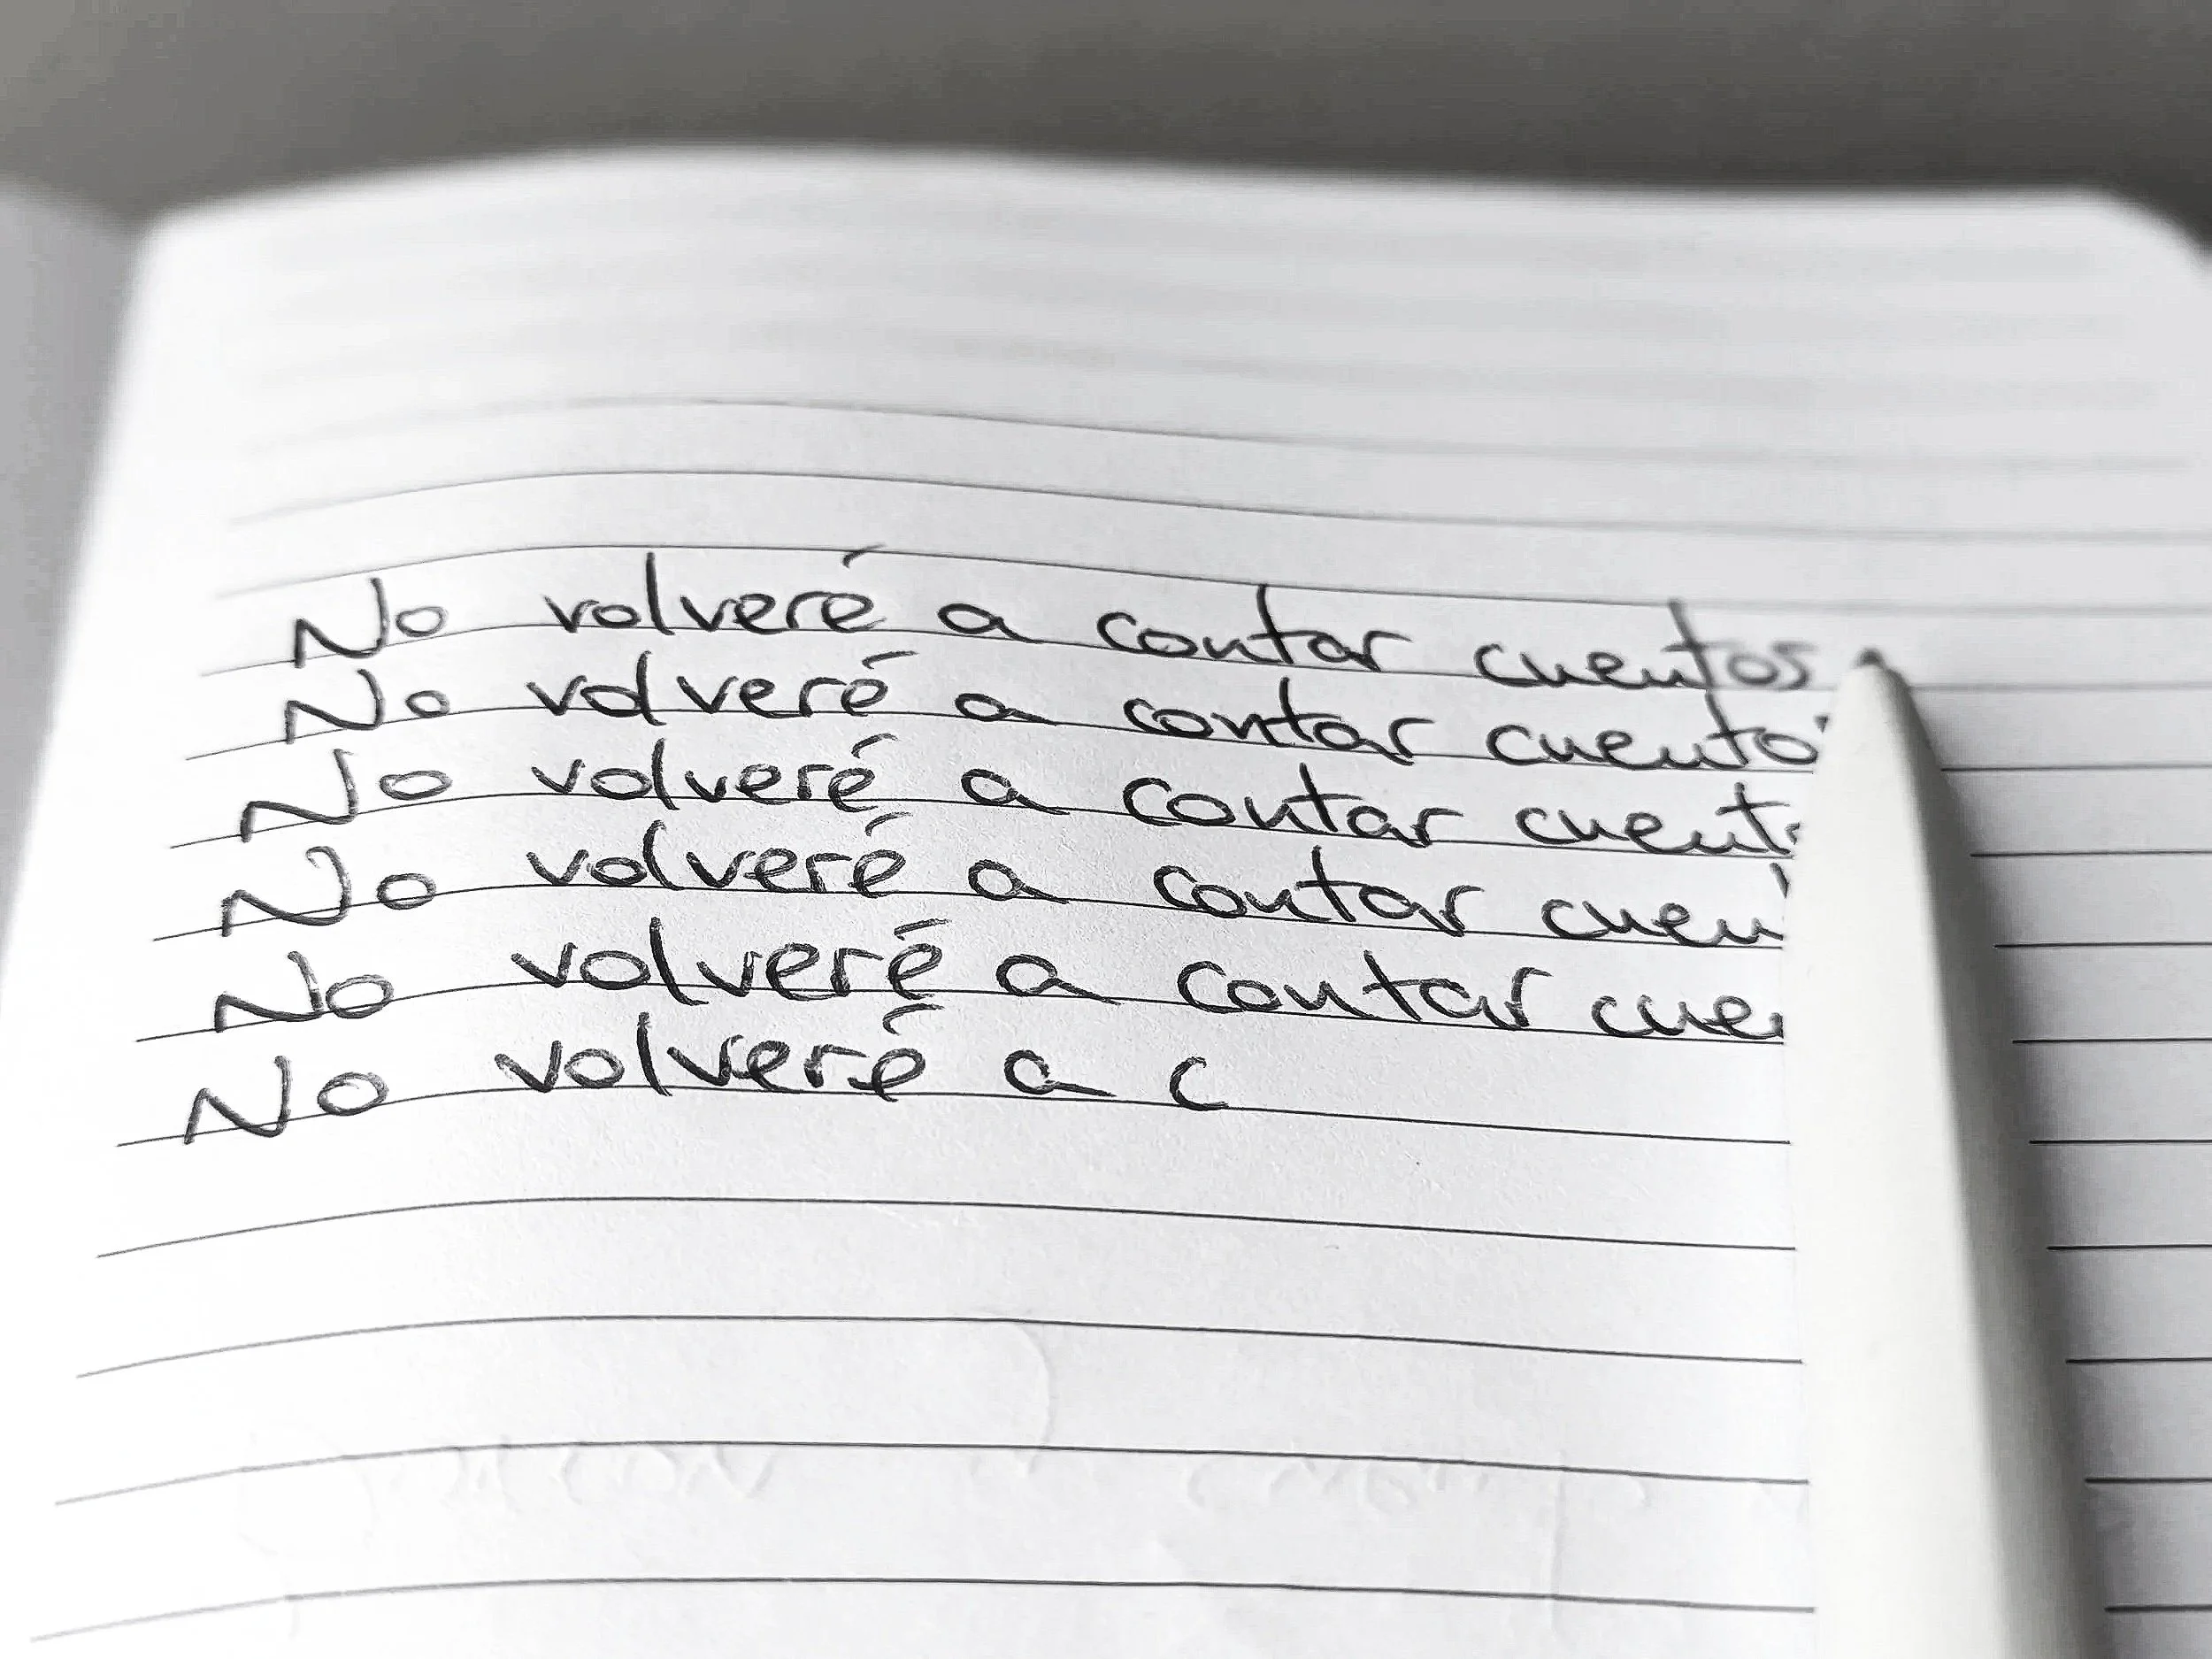 No volveré a contar cuentos
No volveré a contar cuento
No volveré a contar cuent
No volveré a contar cuen
No volveré a contar cue
No volveré a c